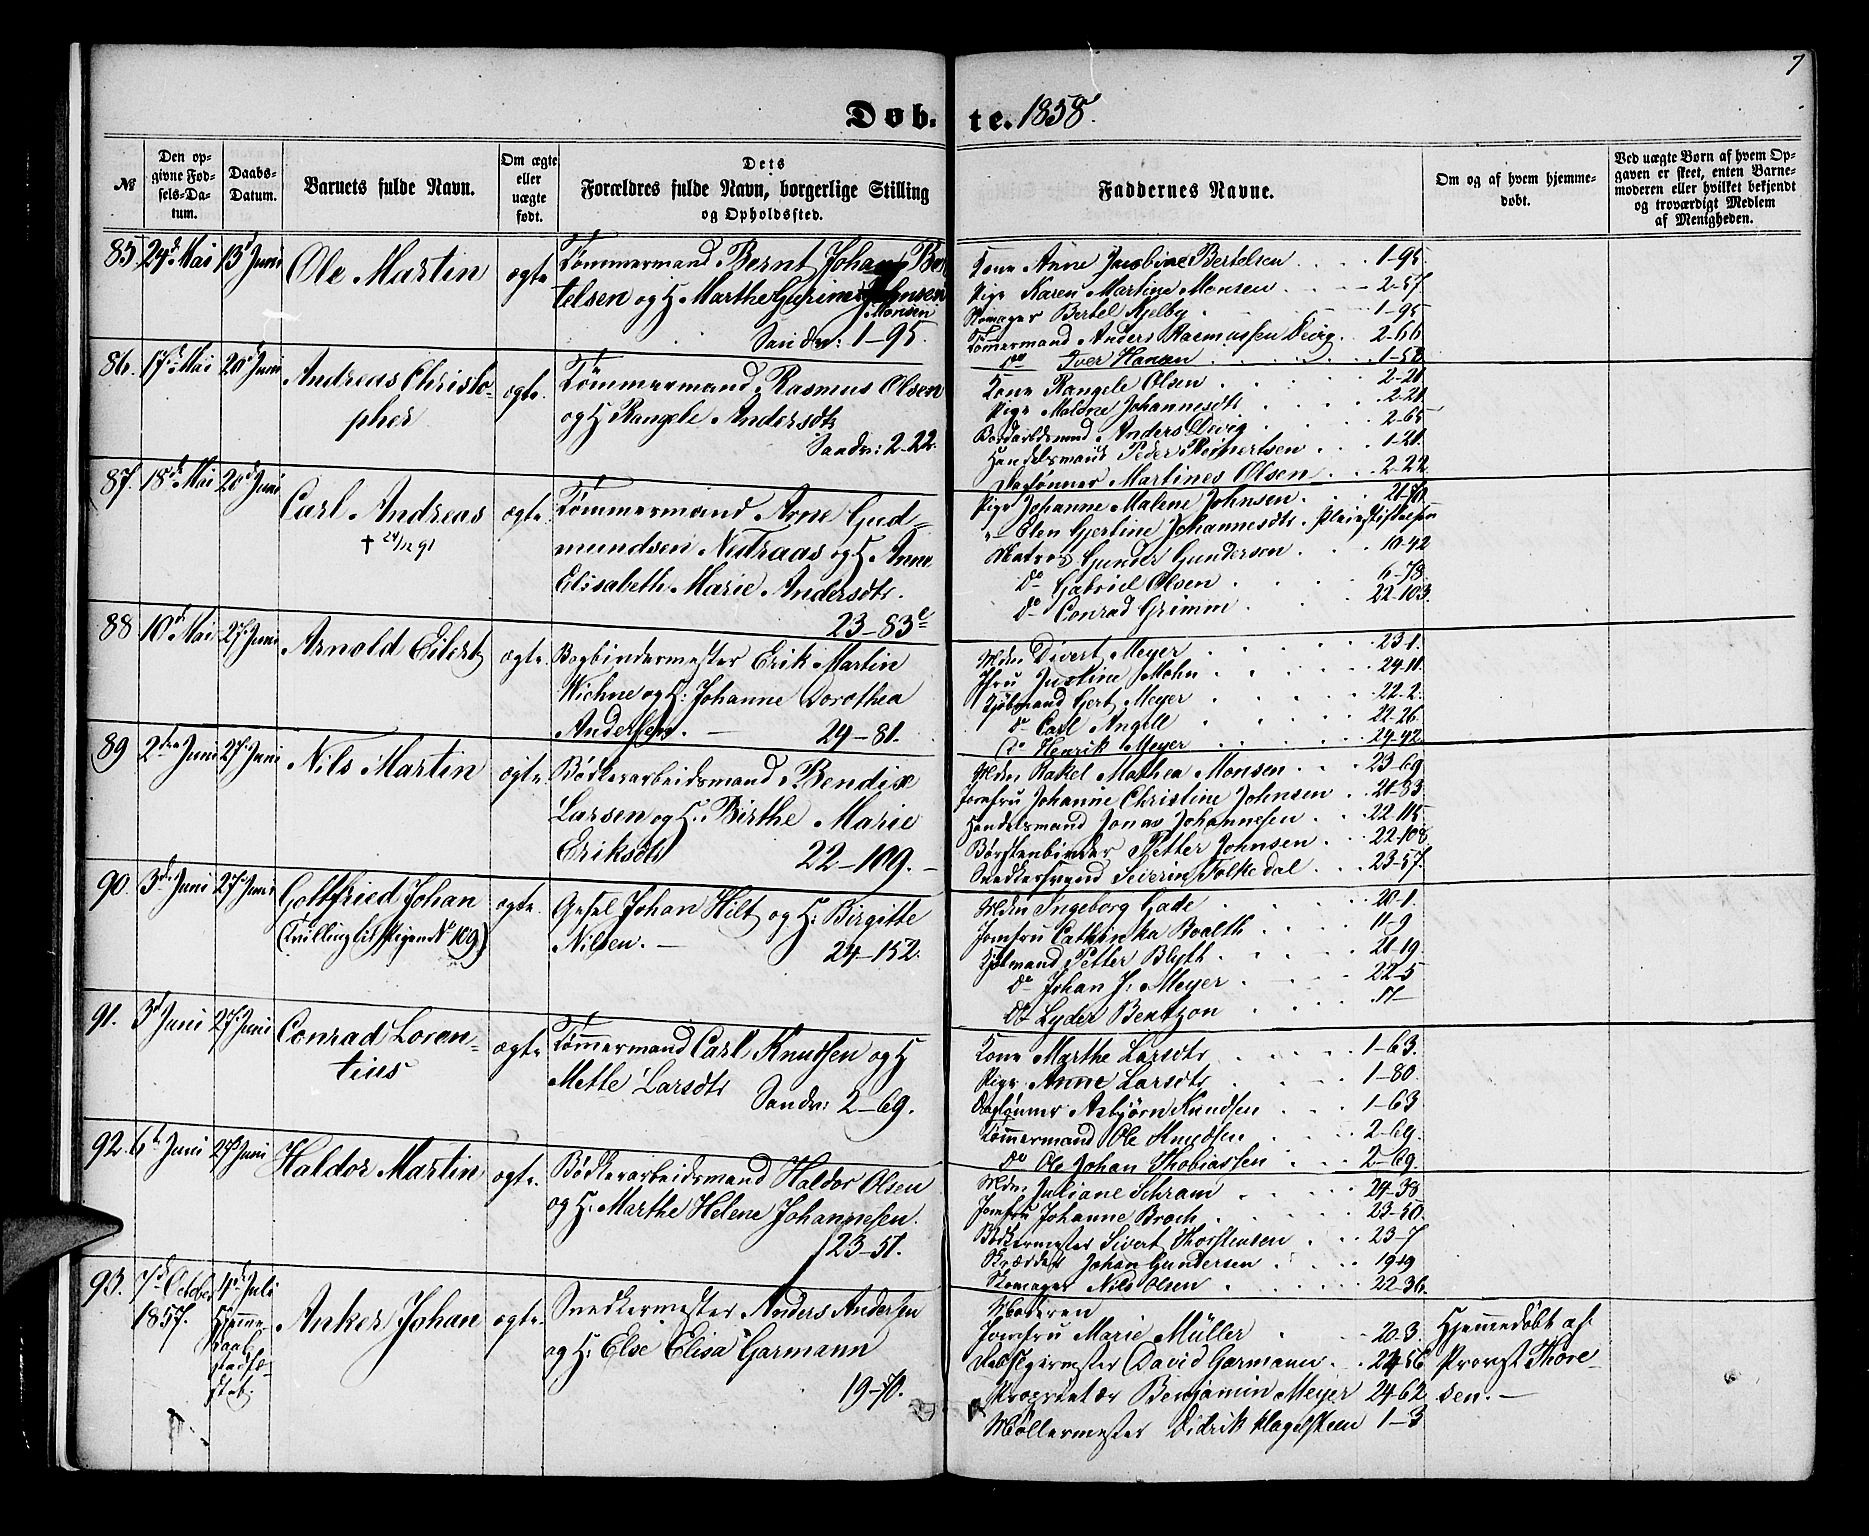 7
Døb- te. 1858.
№
Den op-
givne Fød-
sels-Da-
tum.
Daabs-
Datum.
Barnets fulde Navn.
Om ægte
eller
uægte
født.
Dets
Forældres fulde Navn, borgerlige Stilling
og Opholdssted.
Faddernes Navne.
Om og af hvem hjemme-
døbt.
Ved uægte Børn af hvem Op-
gaven er skeet, enten Barne-
moderen eller hvilket bekjendt
og troværdigt Medlem
af Menigheden.
85. 24d Mai 13d Juni Ole Martin ægte
Tømmermand Bernt Johan Ber
telsen og H. Marthe Gurine
Monsen
Sandv: 1-95.
Kone Anne Bertelsen 1-95
Pige Karen Martine Monsen 2-57
Skomager Bertel 1-95
Tømmermand Anders Rasmussen Devig 2-66
do Iver Hansen 1-58
86. 17d Mai 20d Juni Andreas Christo-
pher ægte.
Tømmermand Rasmus Olsen
og H. Rangele Andersdtr
Sandv: 2-22.
Kone Rangele Olsen 2-21
Pige Malene Johannesdtr 2-21
Anders Devig 2-65
Handelsmand Peder 1-21
Daglønner Martines Olsen 2-22
87. 18d Mai 20d Juni Carl Andreas
† 24/12 91
ægte.
Tømmermand Arne Gud-
mundsen Nedraas og H. Anne
Elisabeth Marie Andersdtr.
23-83c
Pige Johanne Malene Johnsen 21-76
Elen Gjertine Johannesdtr. Pleiestiftelsen
Matros Gunder Gundersen 10-42
do Gabriel Olsen 6-78
do Conrad Grimm 22-103
88 10d Mai 27d Juni Arnold Eilert ægte.
Bogbindermester Erik Martin
Wiehne og H. Johanne Dorothea
Andersen. 24-81.
Mdm Divert Meyer 23-1.
Fru Justine Mohn 24-11
Kjøbmand Gert Meyer 22-2
do Carl Angell 22-26
do Henrik Meyer 24-42
89 2den Juni 27d Juni Nils Martin ægte.
Bødkerarbeidsmand Bendix
Larsen og H. Birthe Marie
Eriksdtr 22-109.
Mdm Rakel Mathea Monsen 23-69
Jomfru Johanne Christine Johnsen 21-83
Handelsmand Jonas Johannesen 22-115
Børstenbinder Petter Johnsen 22-108
Snedkersvend Severin Folkedal 23-57.
90. 3die Juni 27d Juni Gottfried Johan
(Tvilling til Pigen No 109)
ægte.
Gesel Johan Hilt og H: Birgitte
Nilsen. 24-152.
Mdm Ingeborg Gade 20-1.
Jomfru Cathinka Boalth 11-9
Kjøbmand Petter Blyth 21-19
do Johan J: Meyer 22-5
do Lyder Bentzon
91. 3d Juni 27d Juni Conrad Loren-
tius ægte
Tømmermand Carl Knudsen og H
Mette Larsdtr Sandv: 2-69.
Kone Marthe Larsdtr 1-63.
Pige Anne Larsdtr 1-80
Dagløumer Asbjørn Knudsen 1-63
Tømmermand Ole Knudsen 2-69.
do Ole Johan Thobiassen 2-69.
92. 6te Juni 27d Juni Haldor Martin ægte.
Bødkerarbeidsmand Haldor Olsen
og H. Marthe Helene Johannesen.
23-51.
Mdm Juliane Schram 24-38
Jomfru Johanne Broch 23-50.
Bødkermester Sivert Thorstensen 23-7
Skrædder Johan Gundersen 19-19
Skomager Nils Olsen 22-36
93. 7d October
1857.
4d Juli
Hjemme-
daab
stadfæ-
stet.
Anker Johan ægte.
Snedkermester Anders Andersen
og H: Else Elisa Garmann
19-70.
Moderen
Jomfru Marie Müller 20-3.
David Garmann 22-56
Proprietær Benjamin Meyer 24-62
Møllermester Didrik Hagelsteen 1-3
Hjemmedøbt af
Provst Thore-
sen.